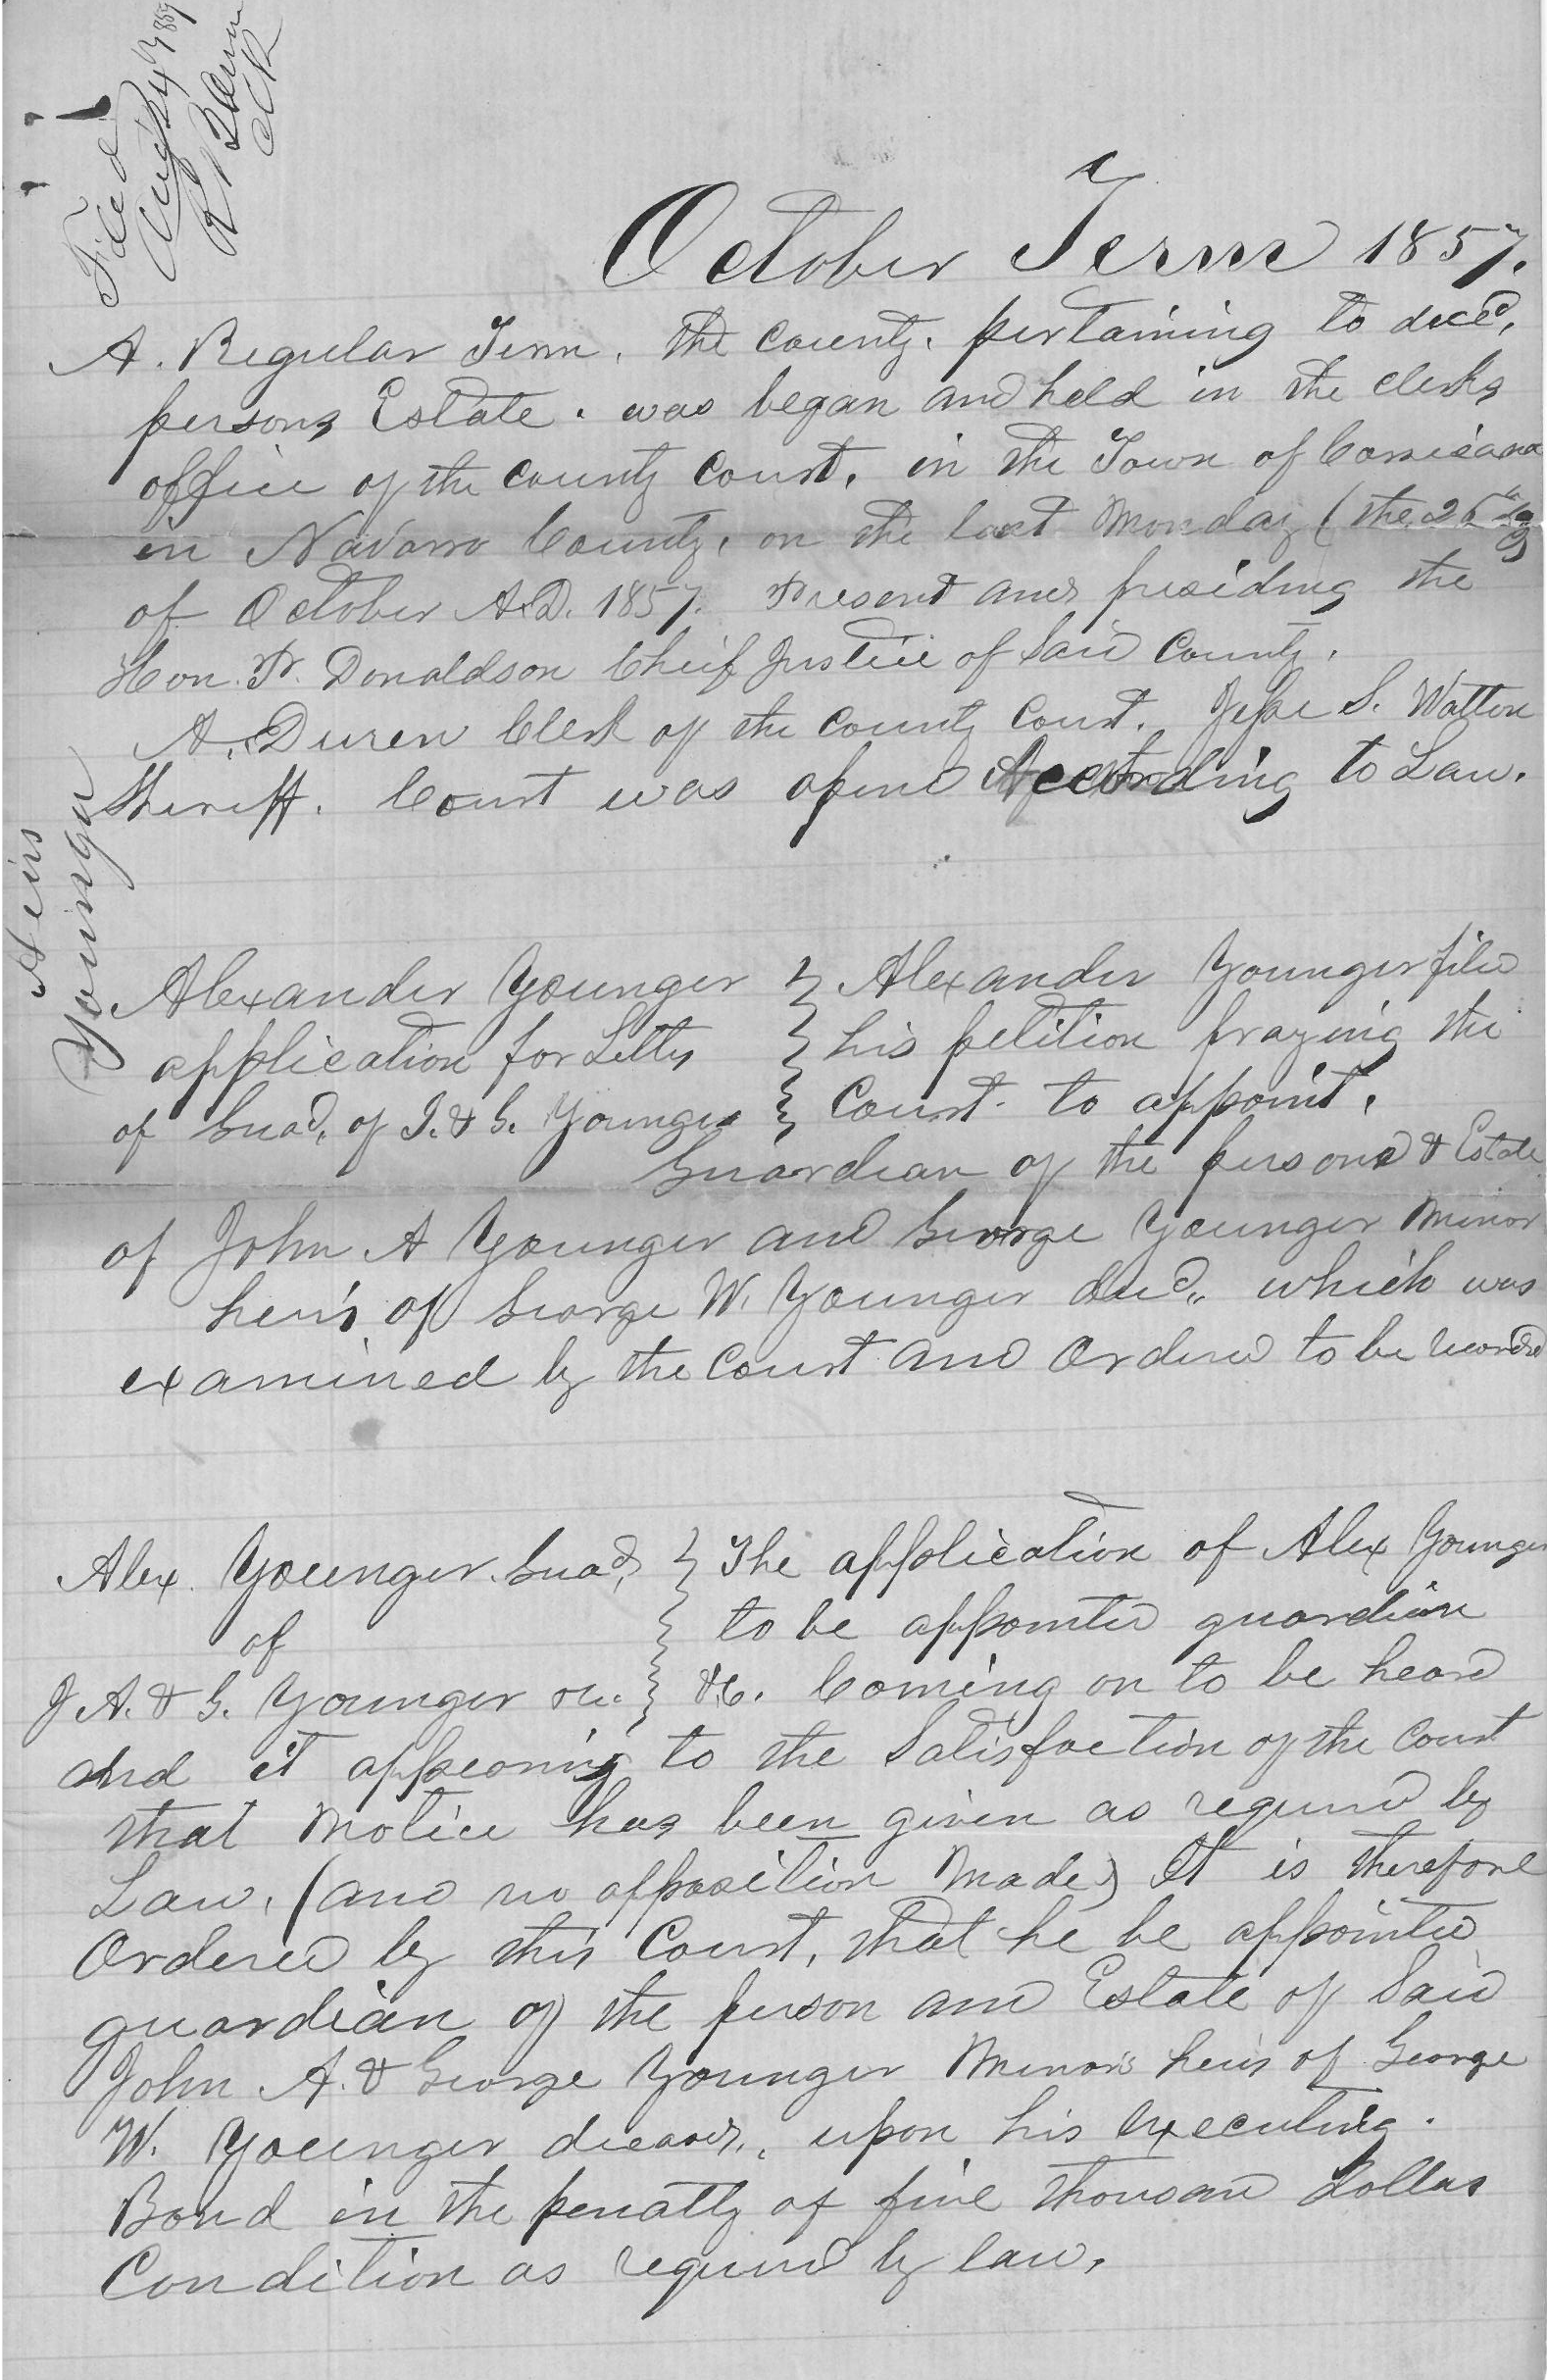 Filed
Augt 24th 1859
October Term 1857.
A. Regular Term. the County. pertaining to decd.
persons Estate. was began and held in the clerks
office of the county Court, in the Town of Corsicana
in Navarro County, on the last Monday (the 26th
of October A.D. 1857. Present and presiding the
Hon. Donaldson Cheif Justice of Said County.
A. Duren Clerk of the county Court. Jesse S. Walton
Sheriff. Court was opend According to Law.
Heirs
Younger
Alexander Younger } Alexander Younger filed
application for Letters } his petition praying the
of Guad. of J. & G. Younger } Court to appoint.
Guardian of the persons & Estate
of John A Younger and George Younger Minor
heirs of George W. Younger decd., which was
examined by the Court and Ordered to be recorded
Alex. Younger Guad. } The application of Alex Younger
of } to be appointed guardian
J A. & G. Younger } &C. Coming on to be heard
and it appearing to the Satisfaction of the Court
that Notice has been given as required by
Law, (and no opposition Made) It is therefore
Ordered by this Court, that he be appointed
guardian of the person and Estate of Said
John A. & George Younger Minors heirs of George
W. Younger deceasd., upon his Executing.
Bond in the penalty of five thousand dollars
Condition as required by law.